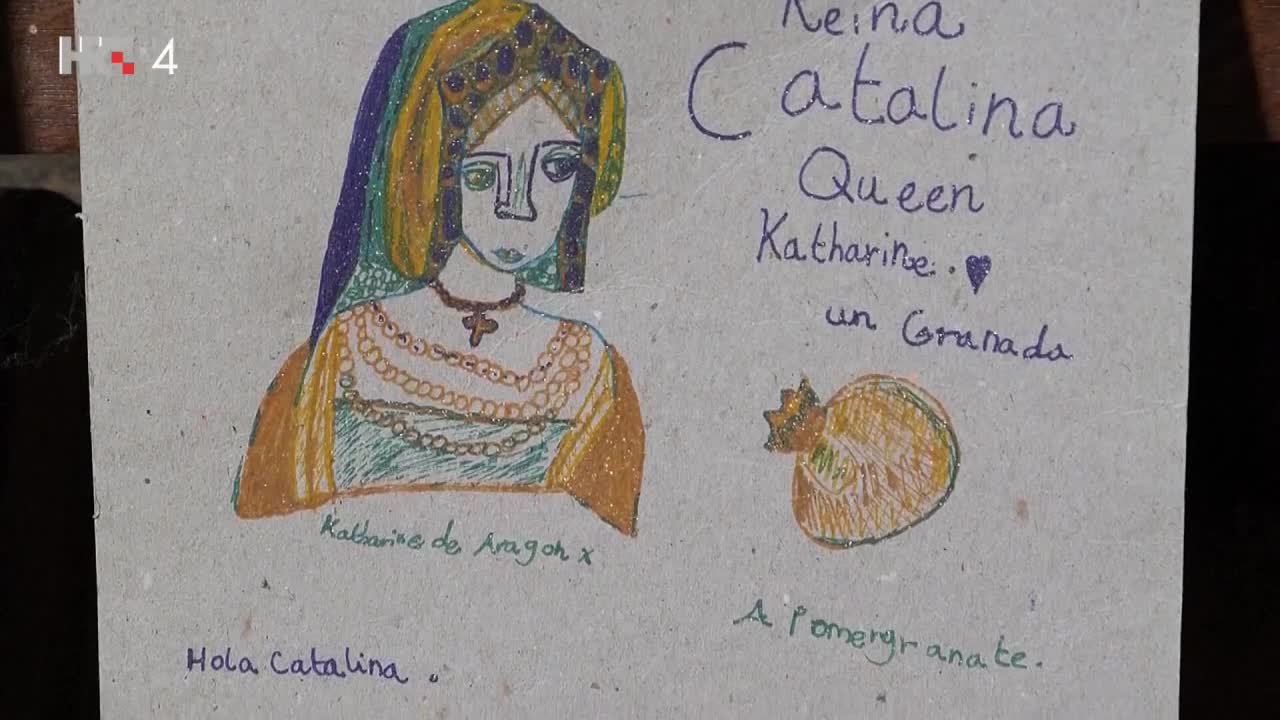 Reina
Catalina
Queen
Katharine.
un Granada
Katharine de Aragon x
A Pomergranate.
Hola Catalina.
4